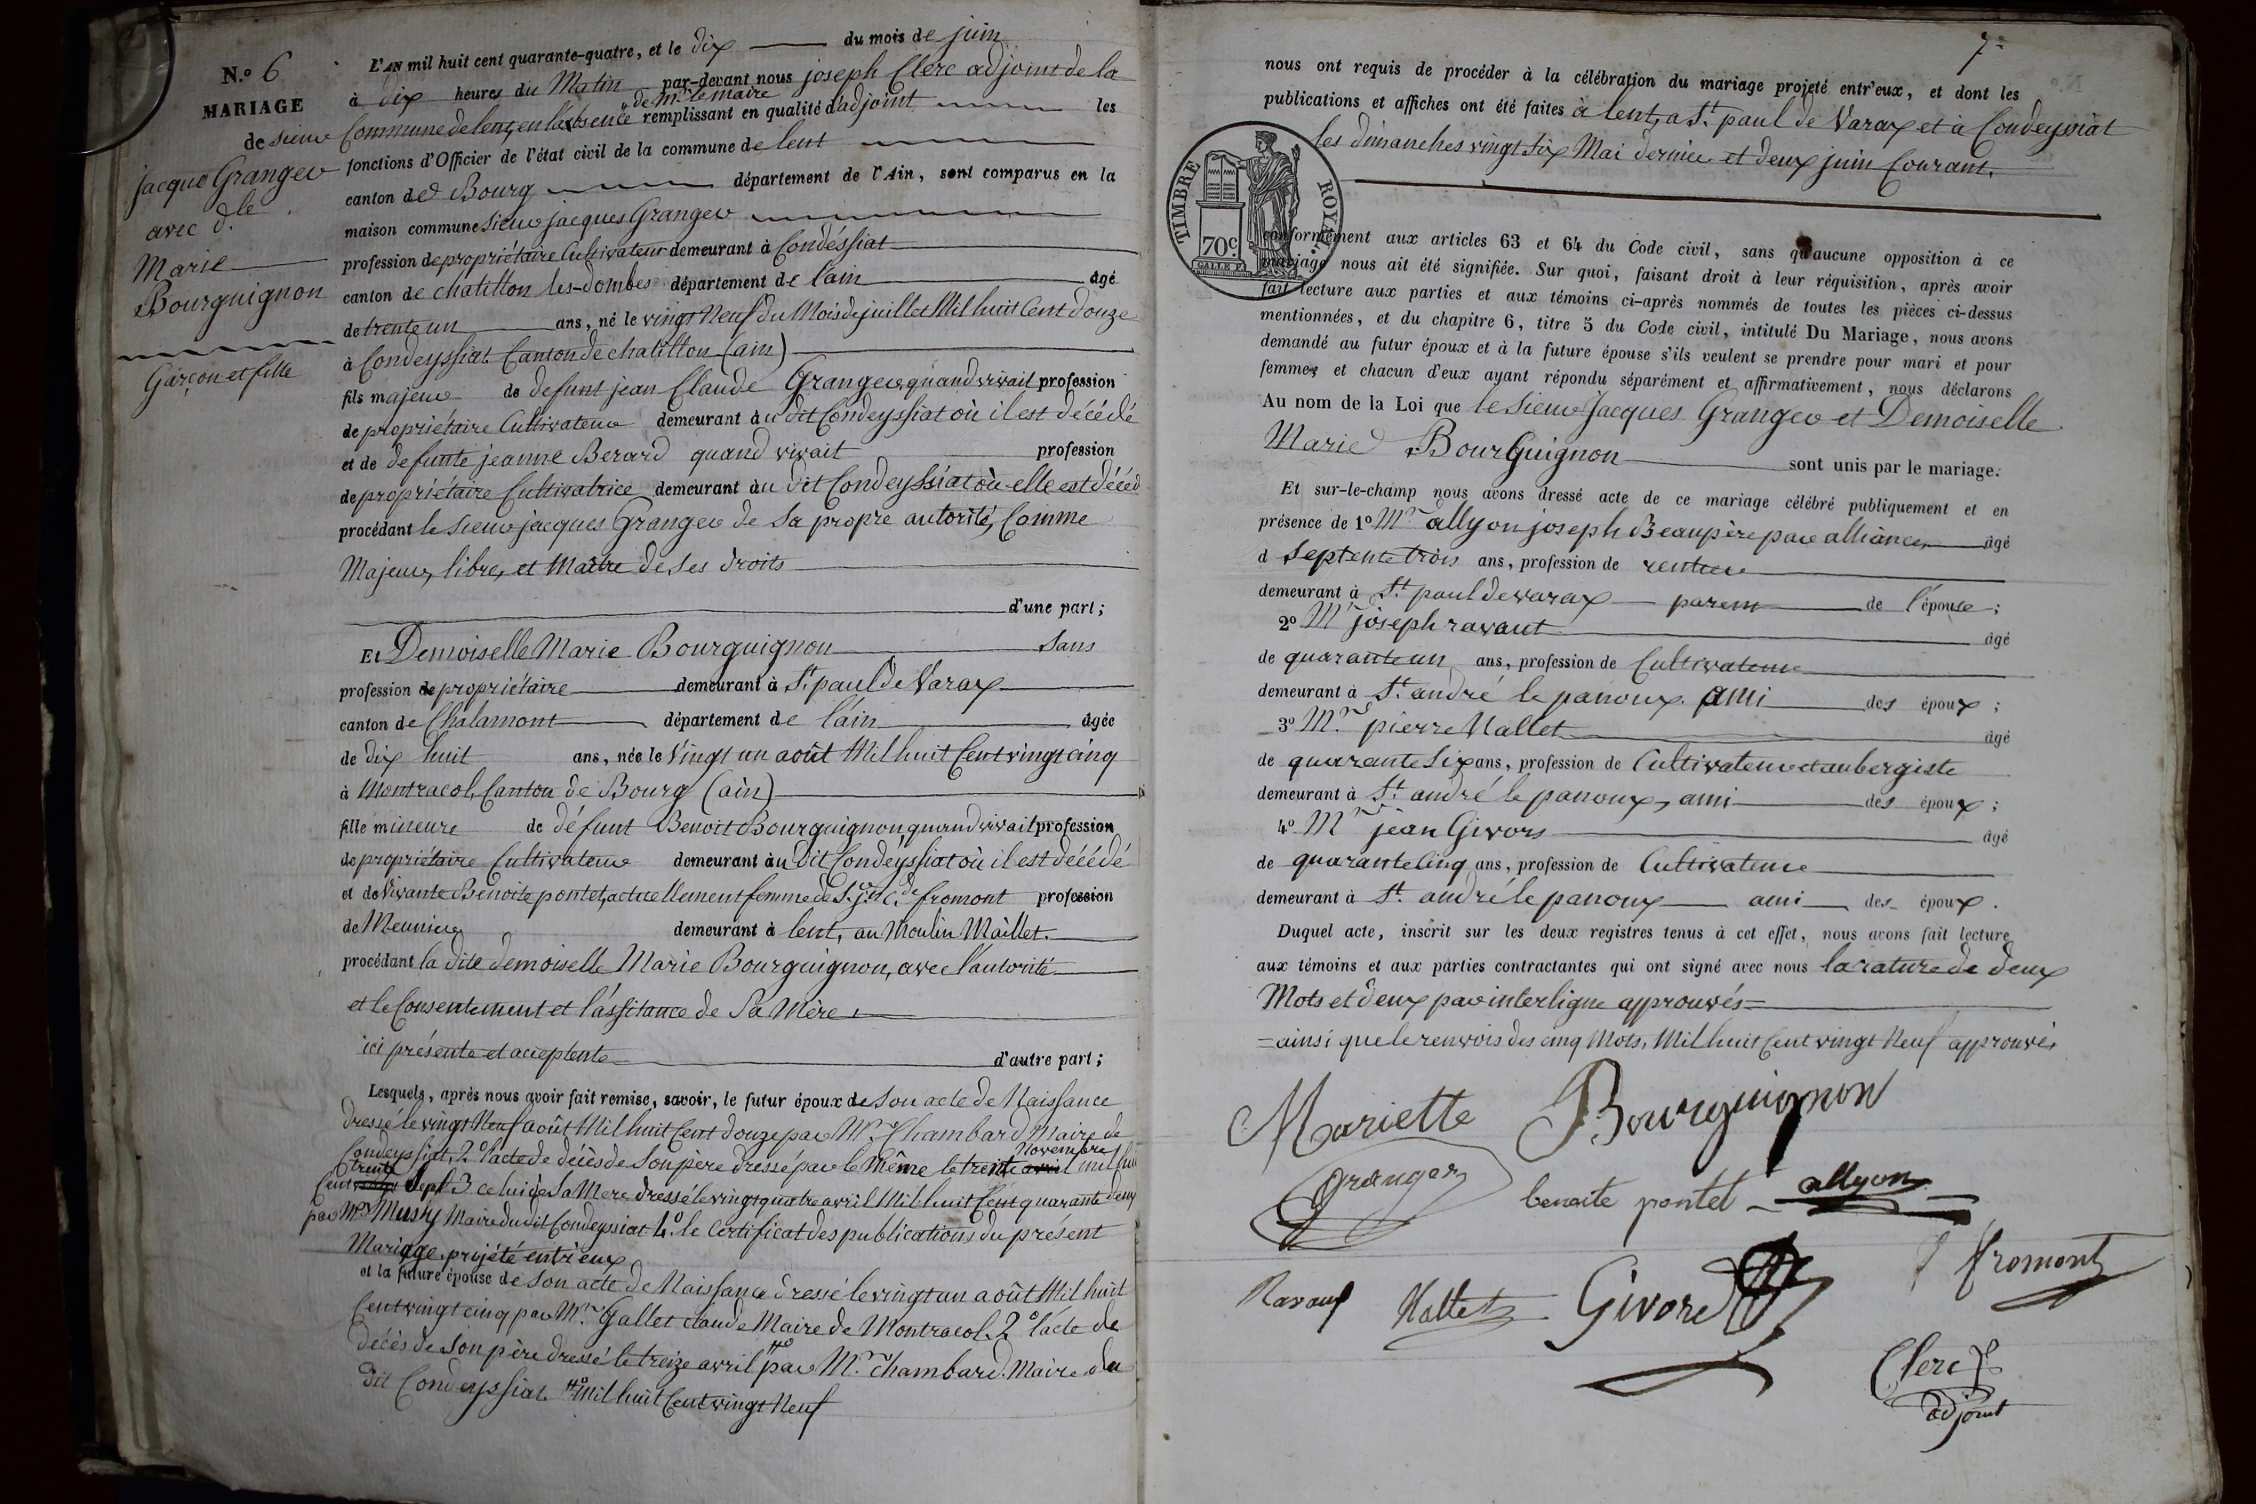 N.º 6
MARIAGE
de sieur
jacque Granger
avec d.lle
Marie
Bourguignon
Garçon et fille
L'AN mil huit cent quarante-quatre, et le dix du mois de juin
à dix heures du Matin par-devant nous joseph Clerc adjoint de la
de Mr. le maire
Commune de lent, en l'absence remplissant en qualité d'adjoint les
fonctions d'Officier de l'état civil de la commune de lent
canton de Bourg département de l'Ain, sont comparus en la
maison commune sieur jacques Granger
profession de propriétaire Cultivateur demeurant à Condéssiat
canton de chatillon les-dombes département de l'ain âgé
de trente un ans, né le vingt Neuf du Mois de juillet Mil huit Cent douze
à Condeyssiat Canton de chatillon (ain)
fils majeur de defunt jean Claude Granger quand vivait profession
de propriétaire Cultivateur demeurant au dit Condeyssiat où il est décédé
et de defunte jeanne Berard quand vivait profession
de propriétaire Cultivatrice demeurant au dit Condeyssiat où elle est décéd
procédant le sieur jacques Granger de sa propre autorité, Comme
Majeur, libre, et Maître de ses droits
d'une part;
Et Demoiselle Marie Bourguignon Sans
profession de propriétaire demeurant à St. paul de Varax
canton de Chalamont département de l'ain âgée
de dix huit ans, née le Vingt un août Mil huit Cent vingt cinq
à Montracol, Canton de Bourg (ain)
fille mineure de défunt Benoit Bourguignon, quand vivait profession
de propriétaire Cultivateur demeurant au dit Condéyssiat où il est décédé
et de Vivante Benoite pontet, actuellement femme de Sr. j.h C.de fromont profession
de Meunier demeurant à lent, au Moulin Maillet.
procédant la dite demoiselle Marie Bourguignon, avec l'autorité
et le Consentement et l'assitance de Sa Mère,
ici présente et acceptente d'autre part;
Lesquels, après nous avoir fait remise, savoir, le futur époux de son acte de Naissance
dressé le vingt Neuf août Mil huit Cent douze par Mr. Chambard Maire de
Condeyssiat, 2º l'acte de décès de son père dressé par le Même le trente avril Novembre mil huit
Cent trente sept 3 celui de sa Mere dressé le vingt quatre avril Mil huit Cent quarante deux
par Mr Musy Maire du dit Condeyssiat 4º. le Certificat des publications du présent
Mariage projété entr'eux
et la future épouse de son acte de Naissance dressé le vingt un août Mil huit
Cent vingt cinq par Mr. Gallet claude Maire de Montracol. 2º l'acte de
décès de son père dressé le treize avril # par Mr. Chambard. Maire du
dit Condeyssiat # Mil huit Cent vingt Neuf
7
nous ont requis de procéder à la célébration du mariage projeté entr'eux, et dont les
publications et affiches ont été faites à lent, a St. paul de Varax et à Condeyssiat
les dimanches vingt six Mai dernier et deux juin Courant.
TIMBRE ROYAL
70 C.
conformément aux articles 63 et 64 du Code civil, sans qu'aucune opposition à ce
mariage nous ait été signifiée. Sur quoi, faisant droit à leur réquisition, après avoir
fait lecture aux parties et aux témoins ci-après nommés de toutes les pièces ci-dessus
mentionnées, et du chapitre 6, titre 5 du Code civil, intitulé Du Mariage, nous avons
demandé au futur époux et à la future épouse s'ils veulent se prendre pour mari et pour
femme, et chacun d'eux ayant répondu séparément et affirmativement, nous déclarons
Au nom de la Loi que le Sieur Jacques Granger et Demoiselle
Marie Bourguignon sont unis par le mariage.
Et sur-le-champ nous avons dressé acte de ce mariage célébré publiquement et en
présence de 1º Mr allyon joseph Beaupère par alliance, âgé
d septente trois ans, profession de rentier
demeurant à St. paul de varax parent de l'épouse;
2º Mr joseph ravaut âgé
de quarante un ans, profession de Cultivateur
demeurant à St. andré le panoux. ami des époux;
3º Mr. pierre Nallet âgé
de quarante six ans, profession de Cultivateur et aubergiste
demeurant à St. andré le panoux, ami des époux;
4º Mr jean Givors âgé
de quarante Cinq ans, profession de Cultivateur
demeurant à St. andré le panoux ami des époux.
Duquel acte, inscrit sur les deux registres tenus à cet effet, nous avons fait lecture
aux témoins et aux parties contractantes qui ont signé avec nous la rature de deux
Mots et deux par interligne approuvés =
= ainsi que le renvois des cinq Mots, Mil huit Cent vingt Neuf approuvés
Mariette Bourguignon
Granger benoite pontet allyon
Ravaut Nallet Givore fromont
Clerc
adjoint